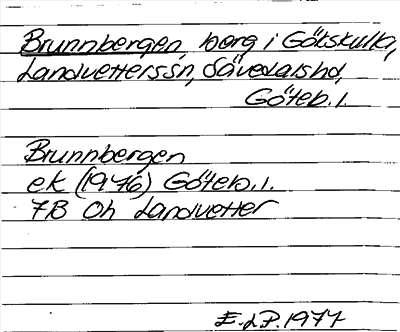 Brunnbergen, berg i Götskulla,
Landvetters sn, Sävedals hd,
Göteb. l.
Brunnbergen
ek (1976) Göteb. l.
7B Oh Landvetter
E.LP. 1977